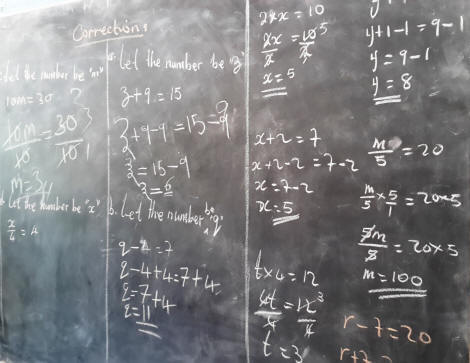 Corrections
Let the number be "m"
10m = 30
10m/10 = 30/10
m = 3
Let the number be "x"
x/4 = 4
Let the number be "z"
z + 9 = 15
z + 9 - 9 = 15 - 9
z = 15 - 9
z = 6
b. Let the number be q.
q - 4 = 7
q - 4 + 4 = 7 + 4
q = 7 + 4
q = 11
x = 10
2x/2 = 10/2 5
x = 5
x + 2 = 7
x + 2 - 2 = 7 - 2
x = 7 - 2
x = 5
t × 4 = 12
4t/4 = 12/4 3
t = 3
y + 1 - 1 = 9 - 1
y = 9 - 1
y = 8
m/5 = 20
m/5 × 5/1 = 20 × 5
5m/5 = 20 × 5
m = 100
r - 7 = 20